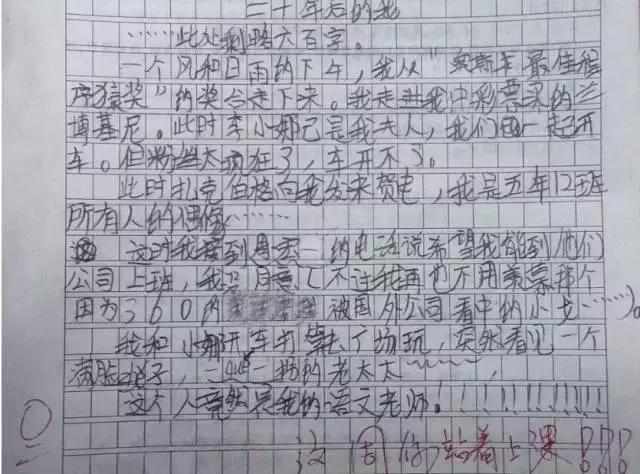 二十年后的我
……此处删略六百字。
一个风和日雨的下午，我从"奥斯卡最佳程
序猿奖"的奖台走下来。我走进我中彩票买的兰
博基尼。此时李小娜已是我夫人，我们一起开
车。但粉丝太疯狂了，车开不了。
此时扎克伯格向我发来贺电，我是五年12班
所有人的偶像……
这时我接到周宏一的电话说希望我能到他们
公司上班，我 不 我再也不用
因为360的 被国外公司看中的小 ……)。
我和小娜开车打算去广场玩，突然看见一个
满脸 子， 的老太太~~~~~，
这个人竟然是我的语文老师！！！！！！！！！！！
这周你站着上课！！！